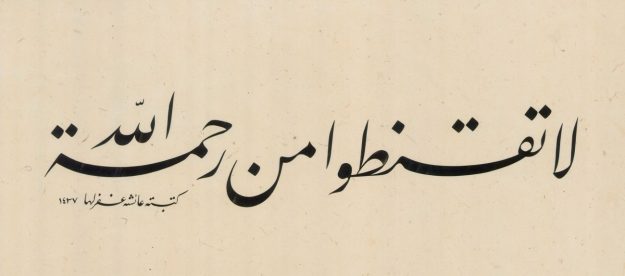 لا تقنطوا من رحمة الله
كتبته عائشه غفر لها ١٤٣٧